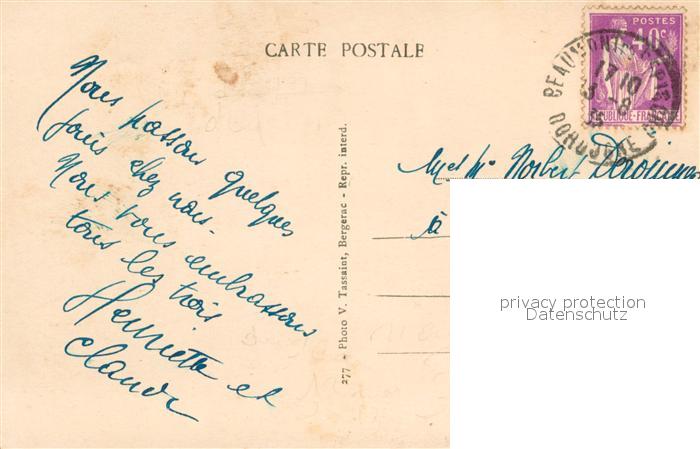 CARTE POSTALE
POSTES
40c
REPUBLIQUE FRANÇAISE
BEAUMONT
17 10
DORDOGNE
Nous passons quelques
jours chez nous.
Nous vous embrassons
tous les trois
Henriette et
Claude
277 - Photo V. Tassaint, Bergerac - Repr. interd.
M et Mme Norbert
à
privacy protection
Datenschutz